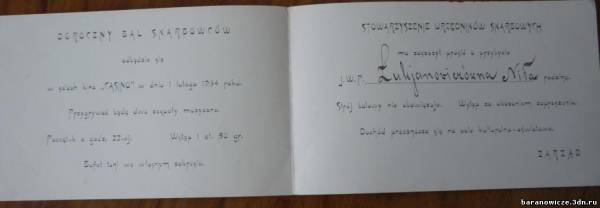 DOROCZNY BAL SKARBOWCÓW
odbędzie się
w salach kina „CASINO” w dniu 1 lutego 1934 roku.
Przygrywać będą dwa zespoły muzyczne.
Początek o godz. 22-ej. Wstęp 1 zł. 50 gr.
Bufet tani we własnym zakresie.
STOWARZYSZENIE URZĘDNIKÓW SKARBOWYCH
ma zaszczyt prosić o przybycie
J.W.P. Łukjanowiczówna Niła rodziną.
Strój balowy nie obowiązuje. Wstęp za okazaniem zaproszenia.
Dochód przeznacza się na cele kulturalno-oświatowe.
ZARZĄD
baranowicze.3dn.ru